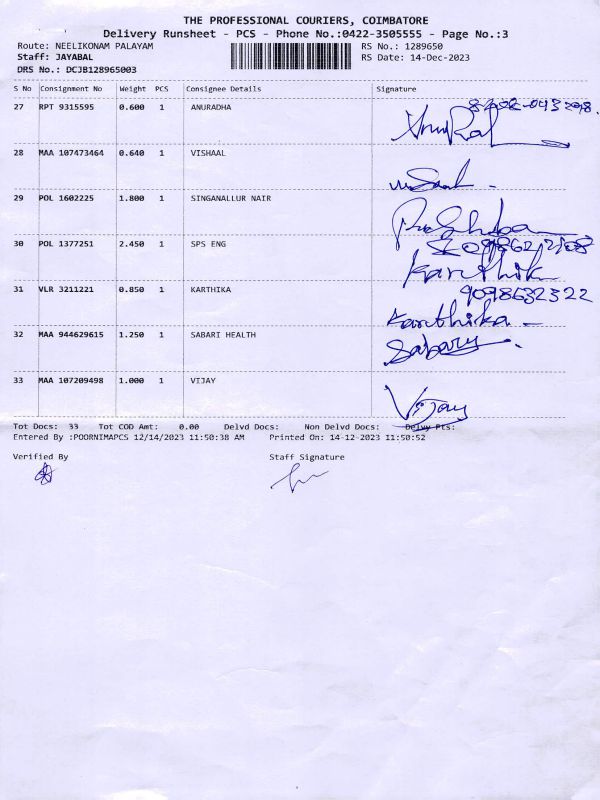 THE PROFESSIONAL COURIERS, COIMBATORE
Delivery Runsheet - PCS - Phone No.:0422-3505555 - Page No.:3
Route: NEELIKONAM PALAYAM RS No.: 1289650
Staff: JAYABAL RS Date: 14-Dec-2023
DRS No.: DCJB128965003
S No Consignment No Weight PCS Consignee Details Signature
27 RPT 9315595 0.600 1 ANURADHA
28 MAA 107473464 0.640 1 VISHAAL
29 POL 1602225 1.800 1 SINGANALLUR NAIR
30 POL 1377251 2.450 1 SPS ENG
Karthik
31 VLR 3211221 0.850 1 KARTHIKA
9098632322
Karthika
32 MAA 944629615 1.250 1 SABARI HEALTH
Sabary
33 MAA 107209498 1.000 1 VIJAY
Vijay
Tot Docs: 33 Tot COD Amt: 0.00 Delvd Docs: Non Delvd Docs: Delvy Pcs:
Entered By :POORNIMAPCS 12/14/2023 11:50:38 AM Printed On: 14-12-2023 11:50:52
Verified By Staff Signature